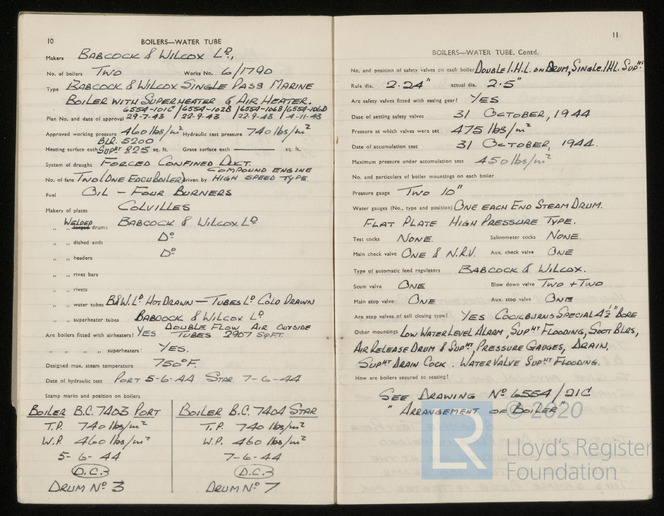 10
BOILERS—WATER TUBE
Makers BABCOCK & WILCOX LD.,
No. of boilers TWO Works No. 6/1790
Type BABCOCK & WILCOX SINGLE PASS MARINE
BOILER WITH SUPERHEATER & AIR HEATER.
6554-101C / 6554-102B / 6554-106B / 6554-106D
Plan No. and date of approval 29-7-43 22-9-43 22-9-43 4-11-43
Approved working pressure 460 lbs/m² Hydraulic test pressure 740 lbs/m²
BLR. 5200
Heating surface each SUPHT 825 sq. ft. Grate surface each — sq. ft.
System of draught FORCED CONFINED DKT.
COMPOUND ENGINE
No. of fans TWO (ONE EACH BOILER) driven by HIGH SPEED TYPE
Fuel OIL - FOUR BURNERS
Makers of plates COLVILLES
WELDED
" " forged drums BABCOCK & WILCOX LD
" " dished ends DO
" " headers DO
" " rivet bars
" " rivets
" " water tubes B&W. LD HOT DRAWN - TUBES LD COLD DRAWN
" " superheater tubes BABCOCK & WILCOX LD
DOUBLE FLOW AIR OUTSIDE
Are boilers fitted with airheaters? YES TUBES 2907 SQ FT.
" " " superheaters? YES.
Designed max. steam temperature 750°F.
Date of hydraulic test PORT 5-6-44 STAR 7-6-44
Stamp marks and position on boilers
BOILER B.C. 7403 PORT BOILER B.C. 7404 STAR
T.P. 740 lbs/m² T.P. 740 lbs/m²
W.P. 460 lbs/m² W.P. 460 lbs/m²
5-6-44 7-6-44
D.C.3 D.C.3
DRUM NO 3 DRUM NO 7
11
BOILERS—WATER TUBE. Contd.
No. and position of safety valves on each boiler DOUBLE I.H.L. ON DRUM, SINGLE IHL SUPHT
Rule dia. 2.24" actual dia. 2.5"
Are safety valves fitted with easing gear? YES
Date of setting safety valves 31 OCTOBER, 1944
Pressure at which valves were set 475 lbs/m²
Date of accumulation test 31 OCTOBER, 1944.
Maximum pressure under accumulation test 450 lbs/m²
No. and particulars of boiler mountings on each boiler
Pressure gauge TWO 10"
Water gauges (No., type and position) ONE EACH END STEAM DRUM.
FLAT PLATE HIGH PRESSURE TYPE.
Test cocks NONE Salinometer cocks NONE.
Main check valve ONE & N.R.V. Aux. check valve ONE
Type of automatic feed regulators BABCOCK & WILCOX.
Scum valve ONE Blow down valve TWO + TWO
Main stop valve ONE Aux. stop valve ONE
Are stop valves of self closing type? YES COCKBURNS SPECIAL 4½" BORE
Other mountings LOW WATER LEVEL ALARM, SUPHT FLOODING, SOOT BLRS,
AIR RELEASE DRUM & SUPHT PRESSURE GAUGES, DRAIN,
SUPHT DRAIN COCK. WATER VALVE SUPHT FLOODING.
How are boilers secured to seating?
SEE DRAWING NO 6554/21C
"ARRANGEMENT OF BOILER"
© 2020
LR
Lloyd's Register
Foundation